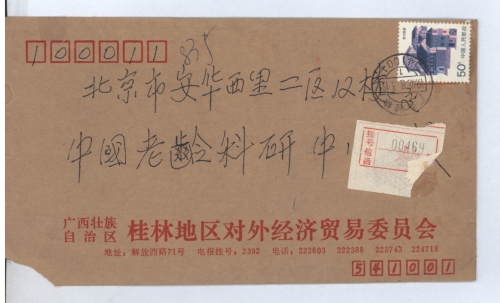 100011
北京市安华西里二区
中國老龄科研中
挂号信函
00469
50分
中国人民邮政
广西壮族
自治区
桂林地区对外经济贸易委员会
地址：解放西路71号 电报挂号：2392 电话：222603 222388 223743 224718
541001